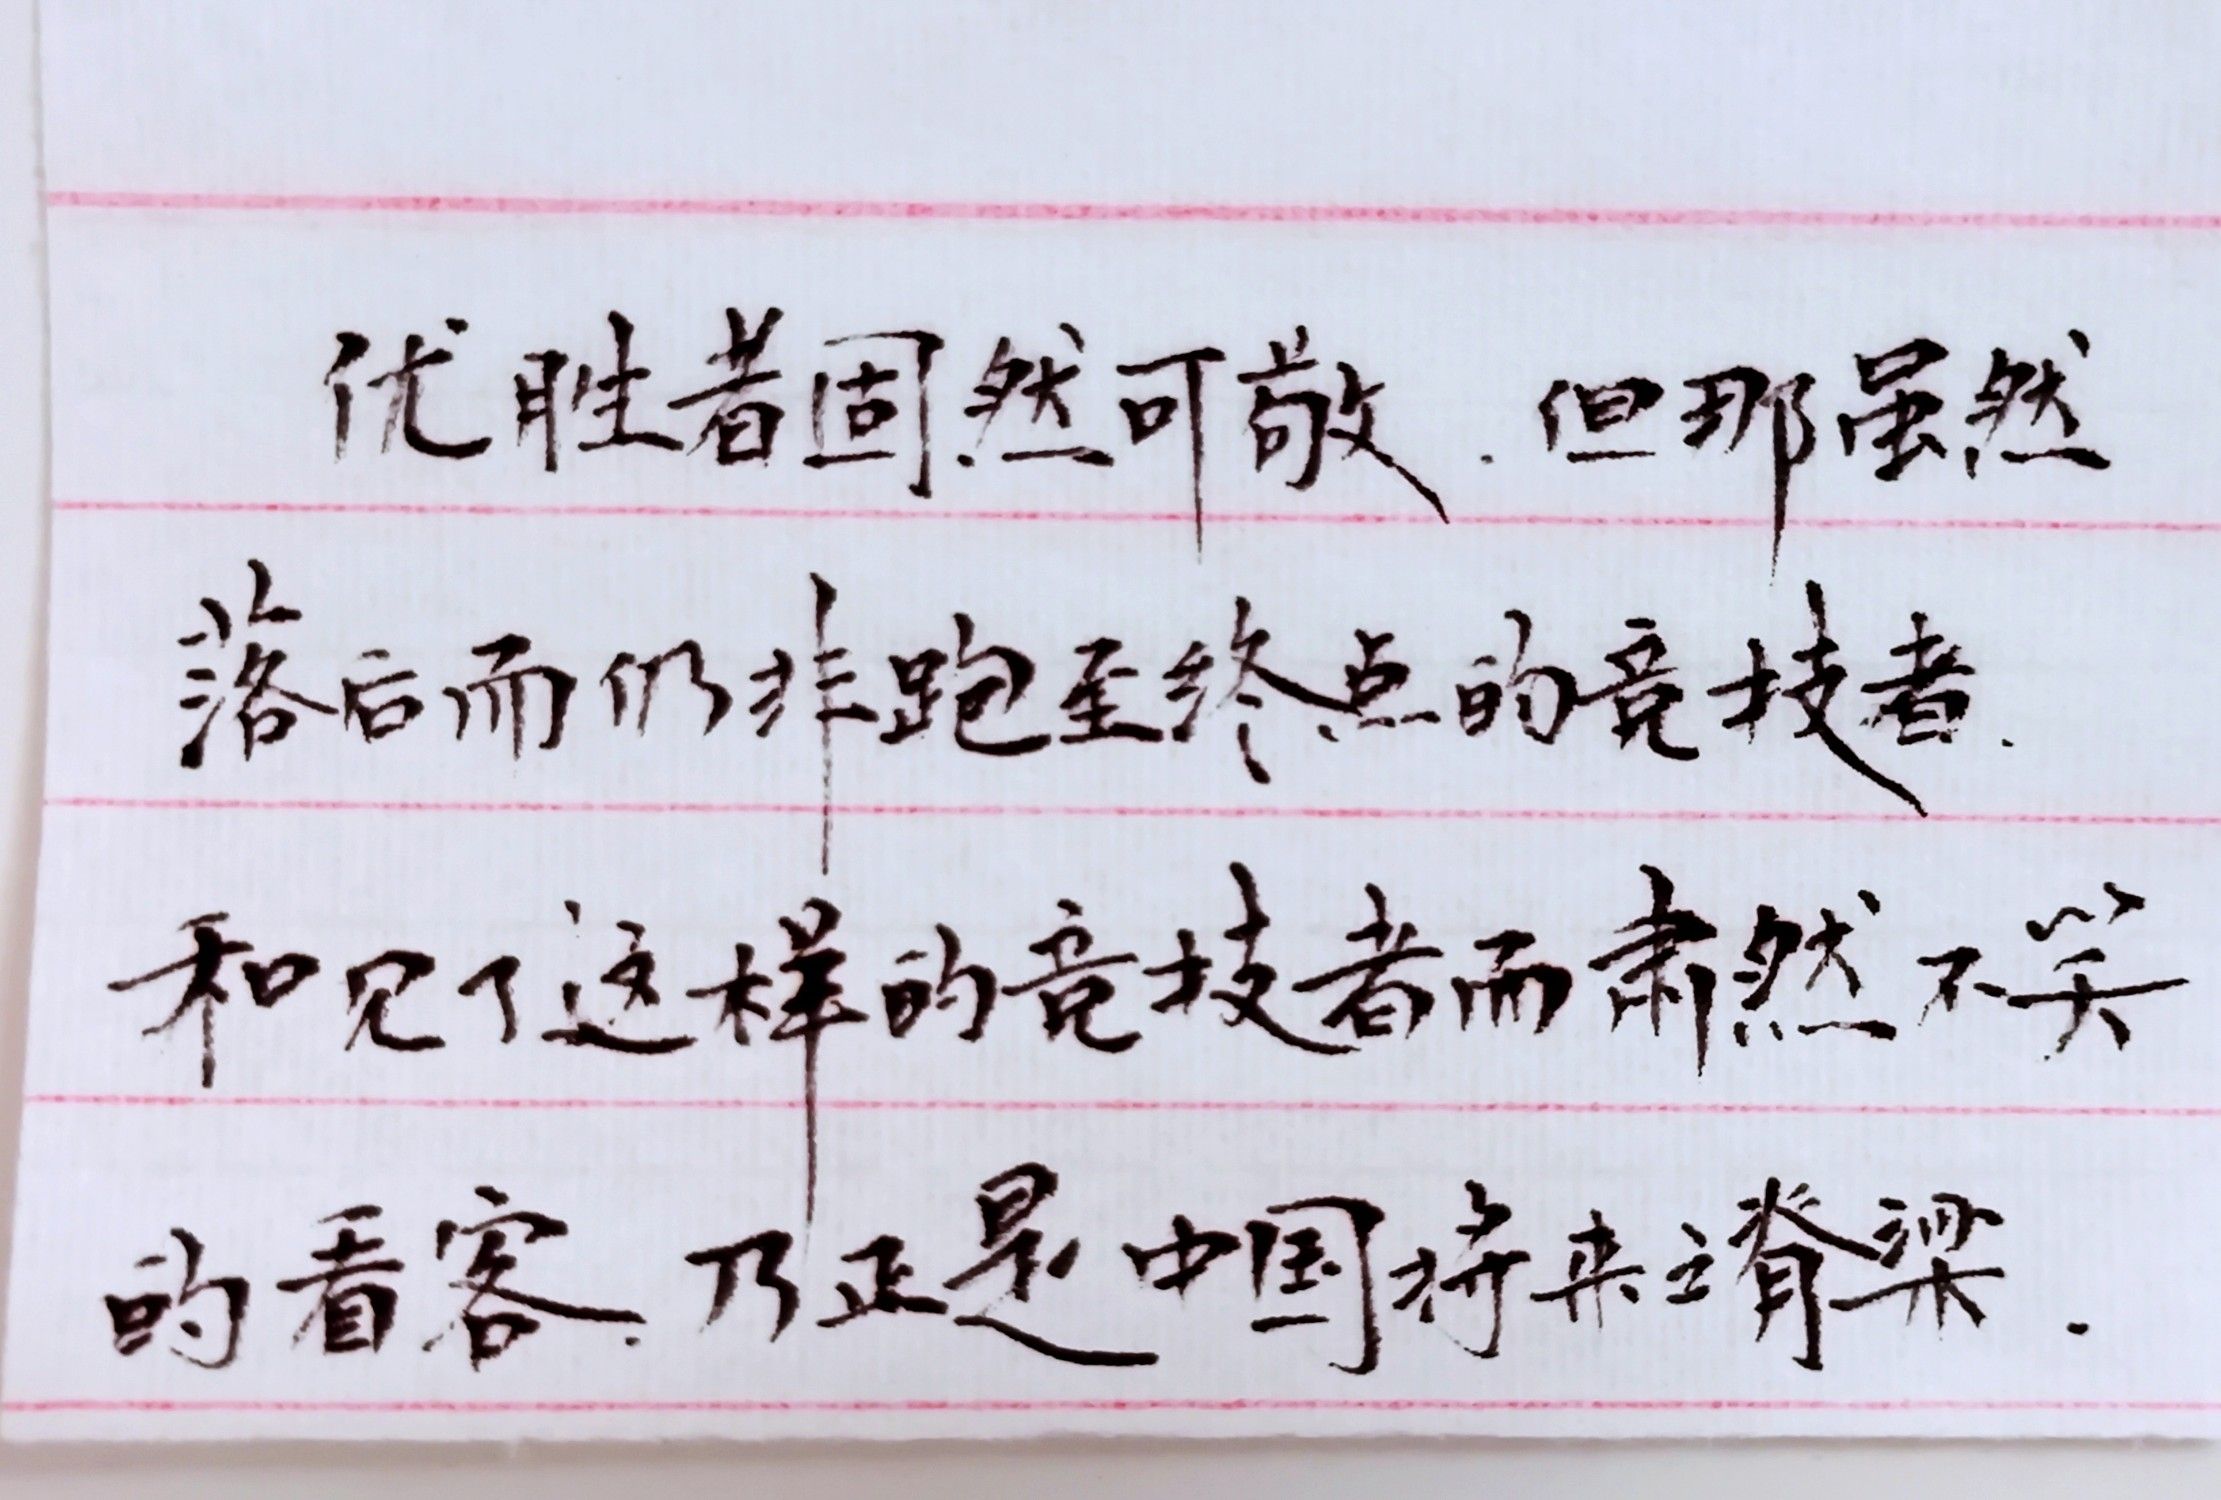 优胜者固然可敬.但那虽然
落后而仍非跑至终点的竞技者.
和见了这样的竞技者而肃然不笑
的看客.乃正是中国将来之脊梁.